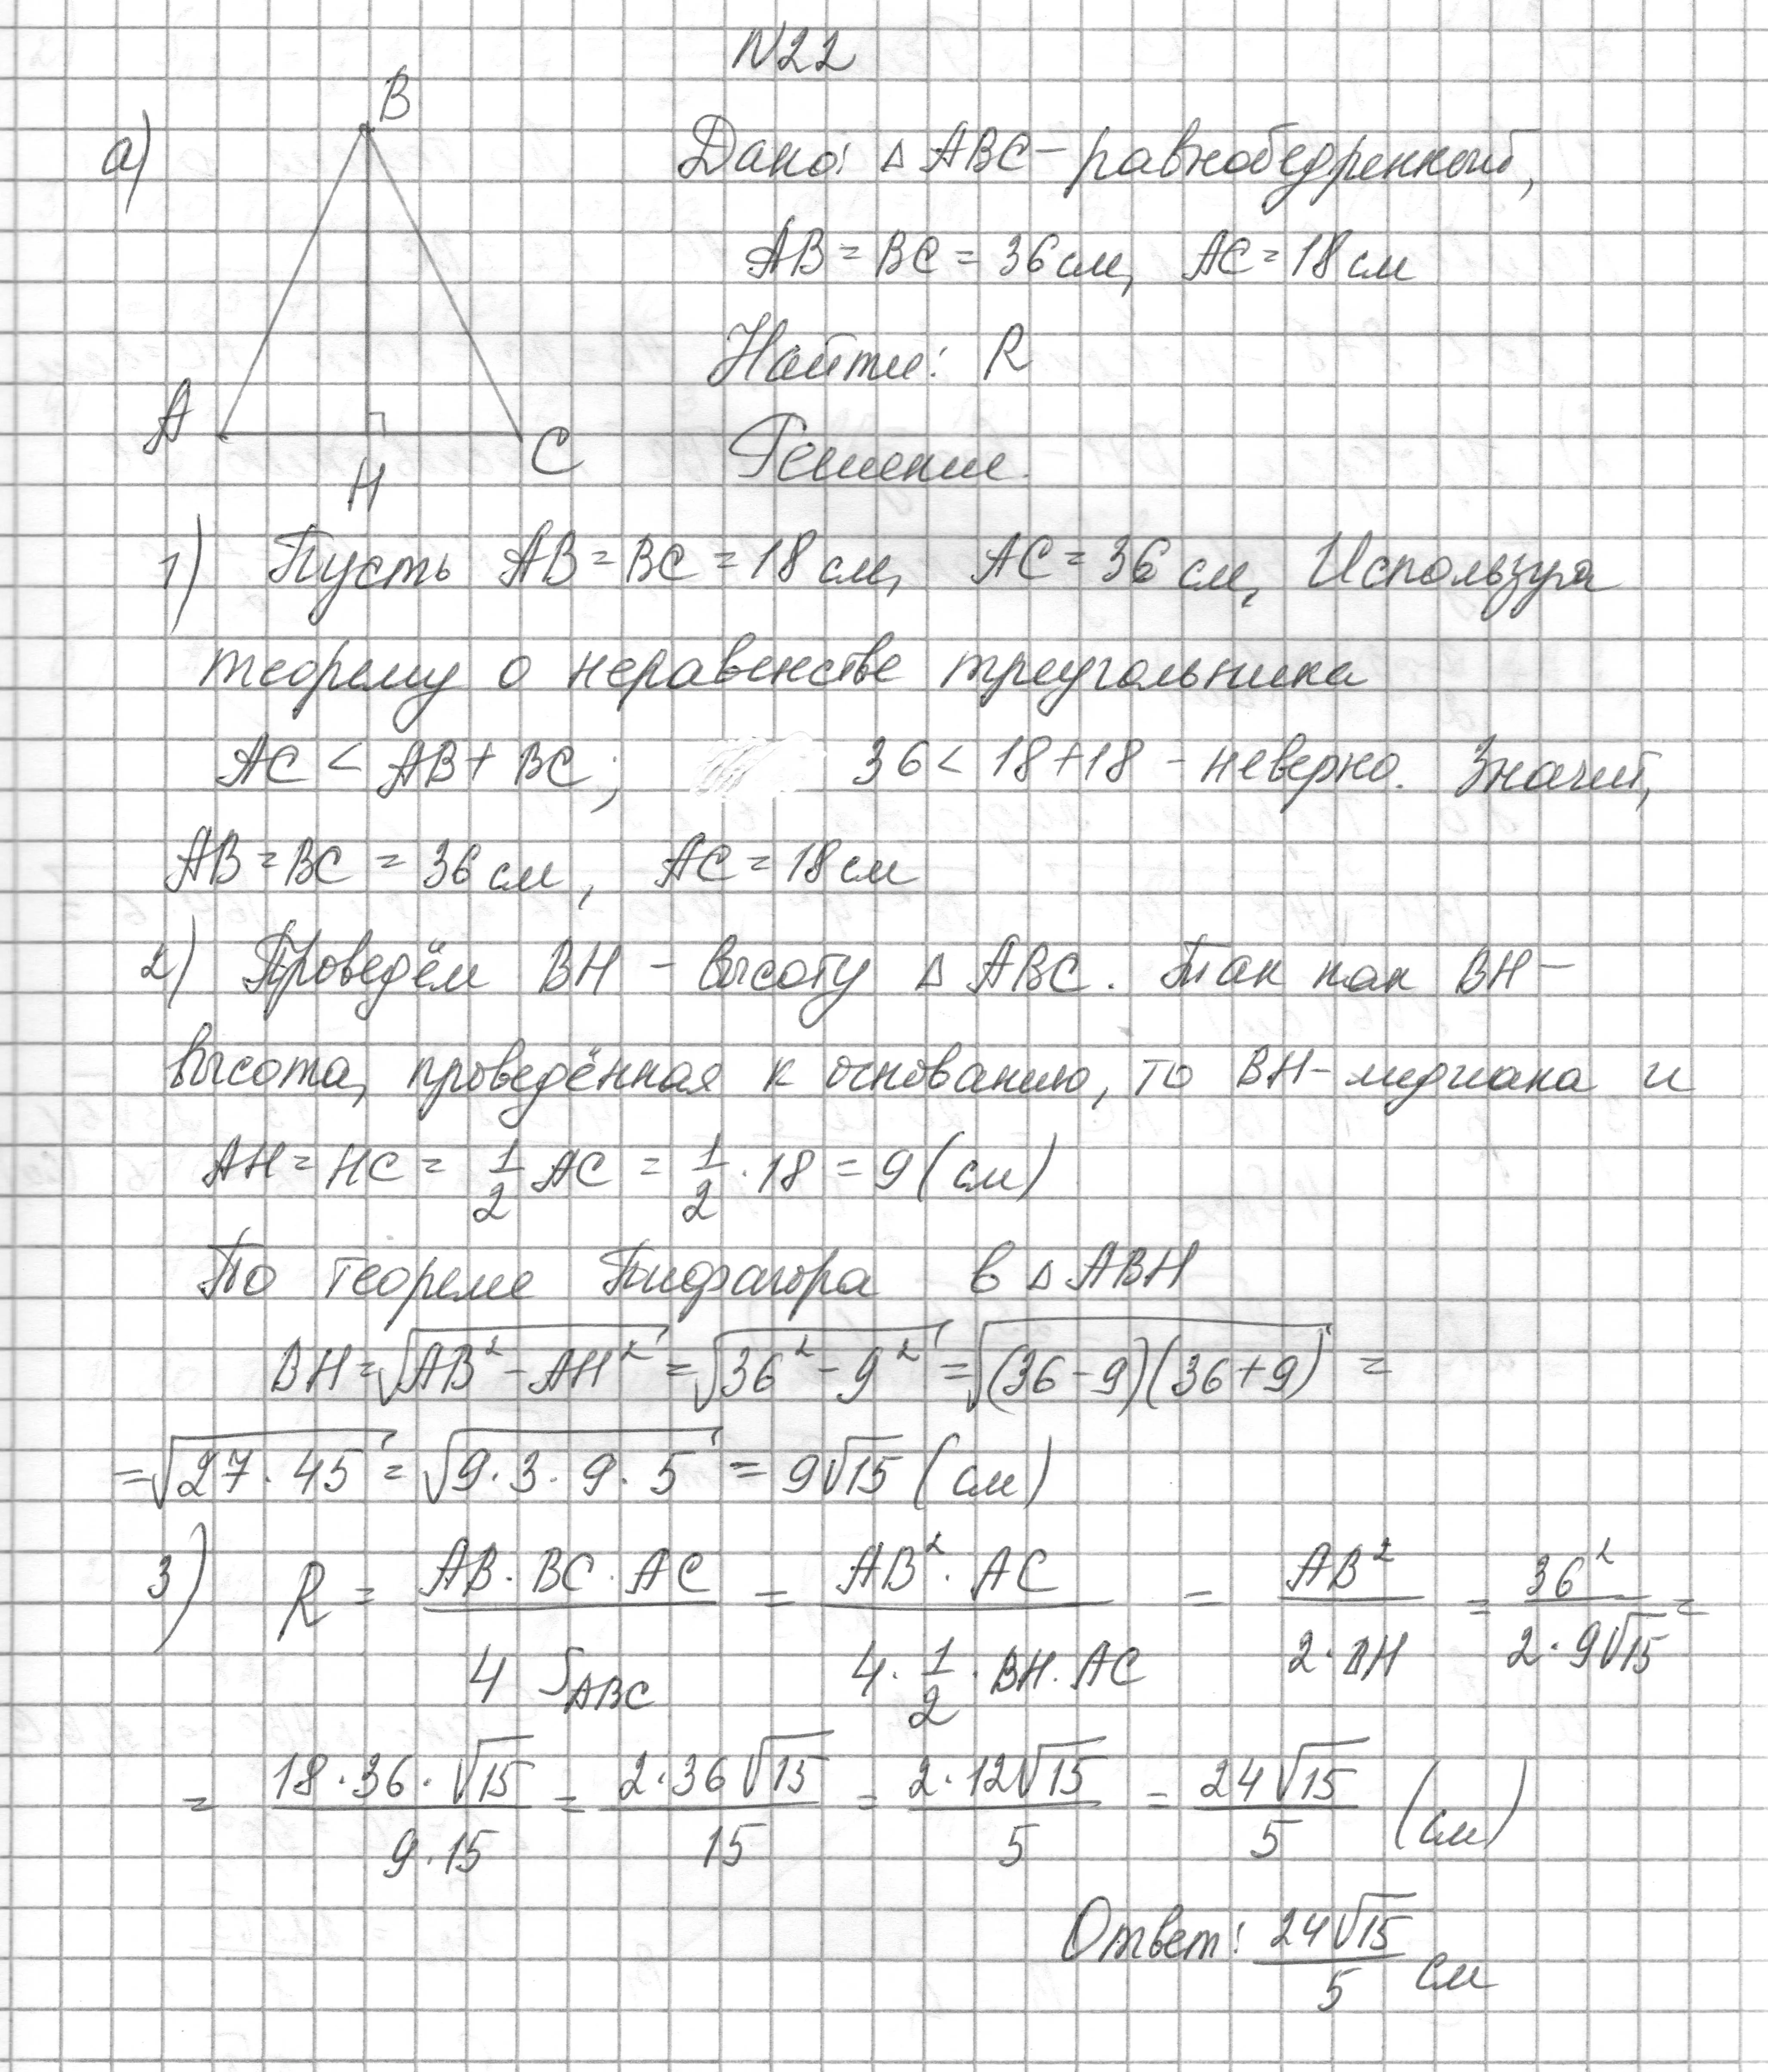 N22
а)
B
A
H
C
Дано: △ ABC – равнобедренный,
AB = BC = 36 см, AC = 18 см
Найти: R
Решение.
1) Пусть AB = BC = 18 см, AC = 36 см, Используя
теорему о неравенстве треугольника
AC < AB + BC; 36 < 18 + 18 – неверно. Значит,
AB = BC = 36 см, AC = 18 см
2) Проведём BH – высоту △ ABC. Так как BH –
высота, проведённая к основанию, то BH – медиана и
AH = HC = 1/2 AC = 1/2 · 18 = 9 (см)
По теореме Пифагора в △ ABH
BH = √(AB² – AH²) = √(36² – 9²) = √((36 – 9)(36 + 9)) =
= √(27 · 45) = √(9 · 3 · 9 · 5) = 9√15 (см)
3) R = (AB · BC · AC)/(4 S_ABC) = (AB² · AC)/(4 · 1/2 · BH · AC) = AB²/(2 · BH) = 36²/(2 · 9√15) =
= (18 · 36 · √15)/(9 · 15) = (2 · 36√15)/15 = (2 · 12√15)/5 = 24√15/5 (см)
Ответ: 24√15/5 см